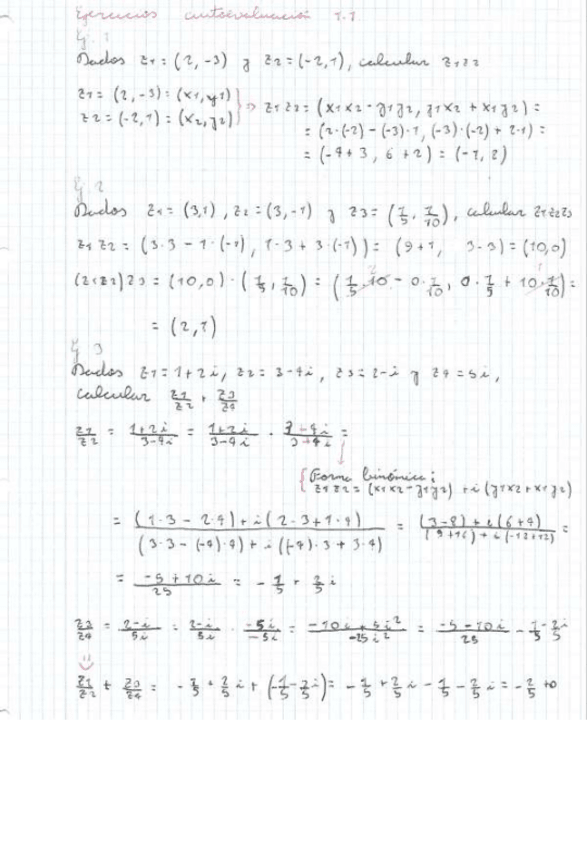 Ejercicios autoevaluación 1.1
Ej. 1
Dados z1 = (2, -3) y z2 = (-2, 1), calcular z1 z2
z1 = (2, -3) = (x1, y1)
z2 = (-2, 1) = (x2, y2) } ⇒ z1 z2 = (x1x2 - y1y2, y1x2 + x1y2) =
= (2·(-2) - (-3)·1, (-3)·(-2) + 2·1) =
= (-4+3, 6+2) = (-1, 8)
Ej. 2
Dados z1 = (3,1), z2 = (3,-1) y z3 = (1/5, 1/10), calcular z1z2z3
z1 z2 = (3·3 - 1·(-1), 1·3 + 3·(-1)) = (9+1, 3-3) = (10,0)
(z1z2)z3 = (10,0)·(1/5, 1/10) = (1/5·10 - 0·1/10, 0·1/5 + 10·1/10) =
= (2,1)
Ej 3
Dados z1 = 1+2i, z2 = 3-4i, z3 = 2-i y z4 = 5i,
calcular z1/z2 + z3/z4
z1/z2 = 1+2i/3-4i = 1+2i/3-4i · 3+4i/3+4i =
{ Forma binómica:
z1 z2 = (x1x2 - y1y2) + i(y1x2 + x1y2)
= (1·3 - 2·4) + i(2·3 + 1·4)/(3·3 - (-4)·4) + i((-4)·3 + 3·4) = (3-8) + i(6+4)/(9+16) + i(-12+12) =
= -5+10i/25 = -1/5 + 2/5 i
z3/z4 = 2-i/5i = 2-i/5i · -5i/-5i = -10i + 5i²/-25i² = -5-10i/25 = -1/5 - 2/5 i
z1/z2 + z3/z4 = -1/5 + 2/5 i + (-1/5 - 2/5 i) = -1/5 + 2/5 i - 1/5 - 2/5 i = -2/5 +0